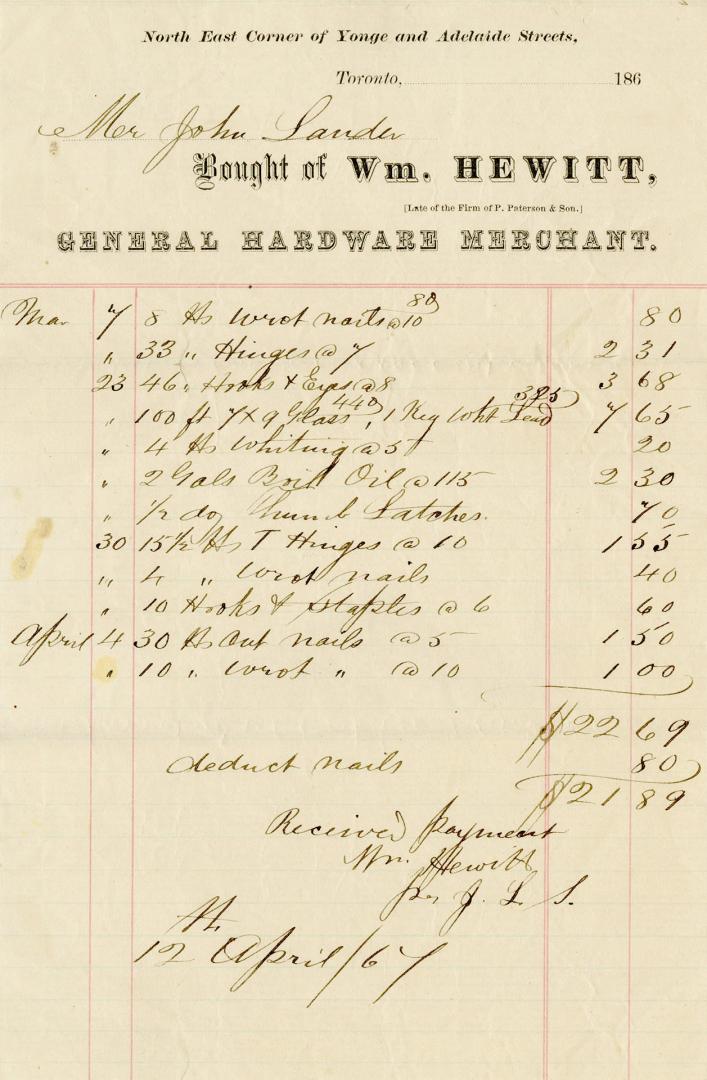 North East Corner of Yonge and Adelaide Streets,
Toronto, 186
Mr John Lander
Bought of Wm. HEWITT,
[Late of the Firm of P. Paterson & Son.]
GENERAL HARDWARE MERCHANT.
Mar 7 8 lbs Wrot nails @ 10 80 80
" 33 " Hinges @ 7 2 31
23 46 " Hooks & Eyes @ 8 3 68
" 100 ft 7x9 Glass 440, 1 Keg Wht Lead 325 7 65
" 4 lbs Whiting @ 5 20
" 2 Gals Boil Oil @ 115 2 30
" 1/2 doz Thumb Latches. 70
30 15 1/2 lbs T Hinges @ 10 1 55
" 4 " Wrot nails 40
" 10 Hooks & Staples @ 6 60
April 4 30 lbs Cut nails @ 5 1 50
" 10 " Wrot " @ 10 1 00
$22 69
deduct nails 80
$21 89
Received payment
Wm. Hewitt
per J. L. S.
12th April/67